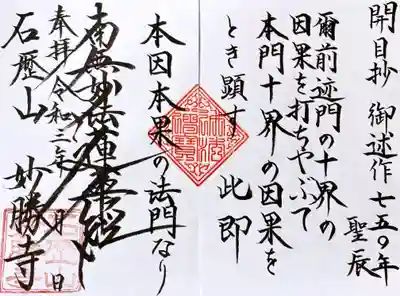 開目抄 御述作 七五〇年
聖辰
爾前迹門の十界の
因果を打ちやぶて
本門十界の因果を
とき顕す 此即
本因本果の法門なり
南無妙法蓮華経
奉拝 令和三年 月 日
石歴山 妙勝寺